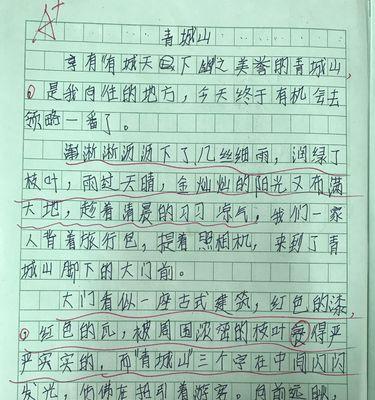 A+
青城山
享有"青城天下幽"之美誉的青城山,
是我向往的地方,今天终于有机会去
领略一番了。
淅淅沥沥下了几丝细雨,润绿了
枝叶,雨过天晴,金灿灿的阳光又布满
大地,趁着清晨的习习凉气,我们一家
人背着旅行包,提着照相机,来到了青
城山脚下的大门前。
大门有似一座古式建筑,红色的漆,
红色的瓦,被周围浓密的枝叶得严
严实实的,而"青城山"三个字在中间闪闪
发光,仿佛在招引着游客。向前远眺,